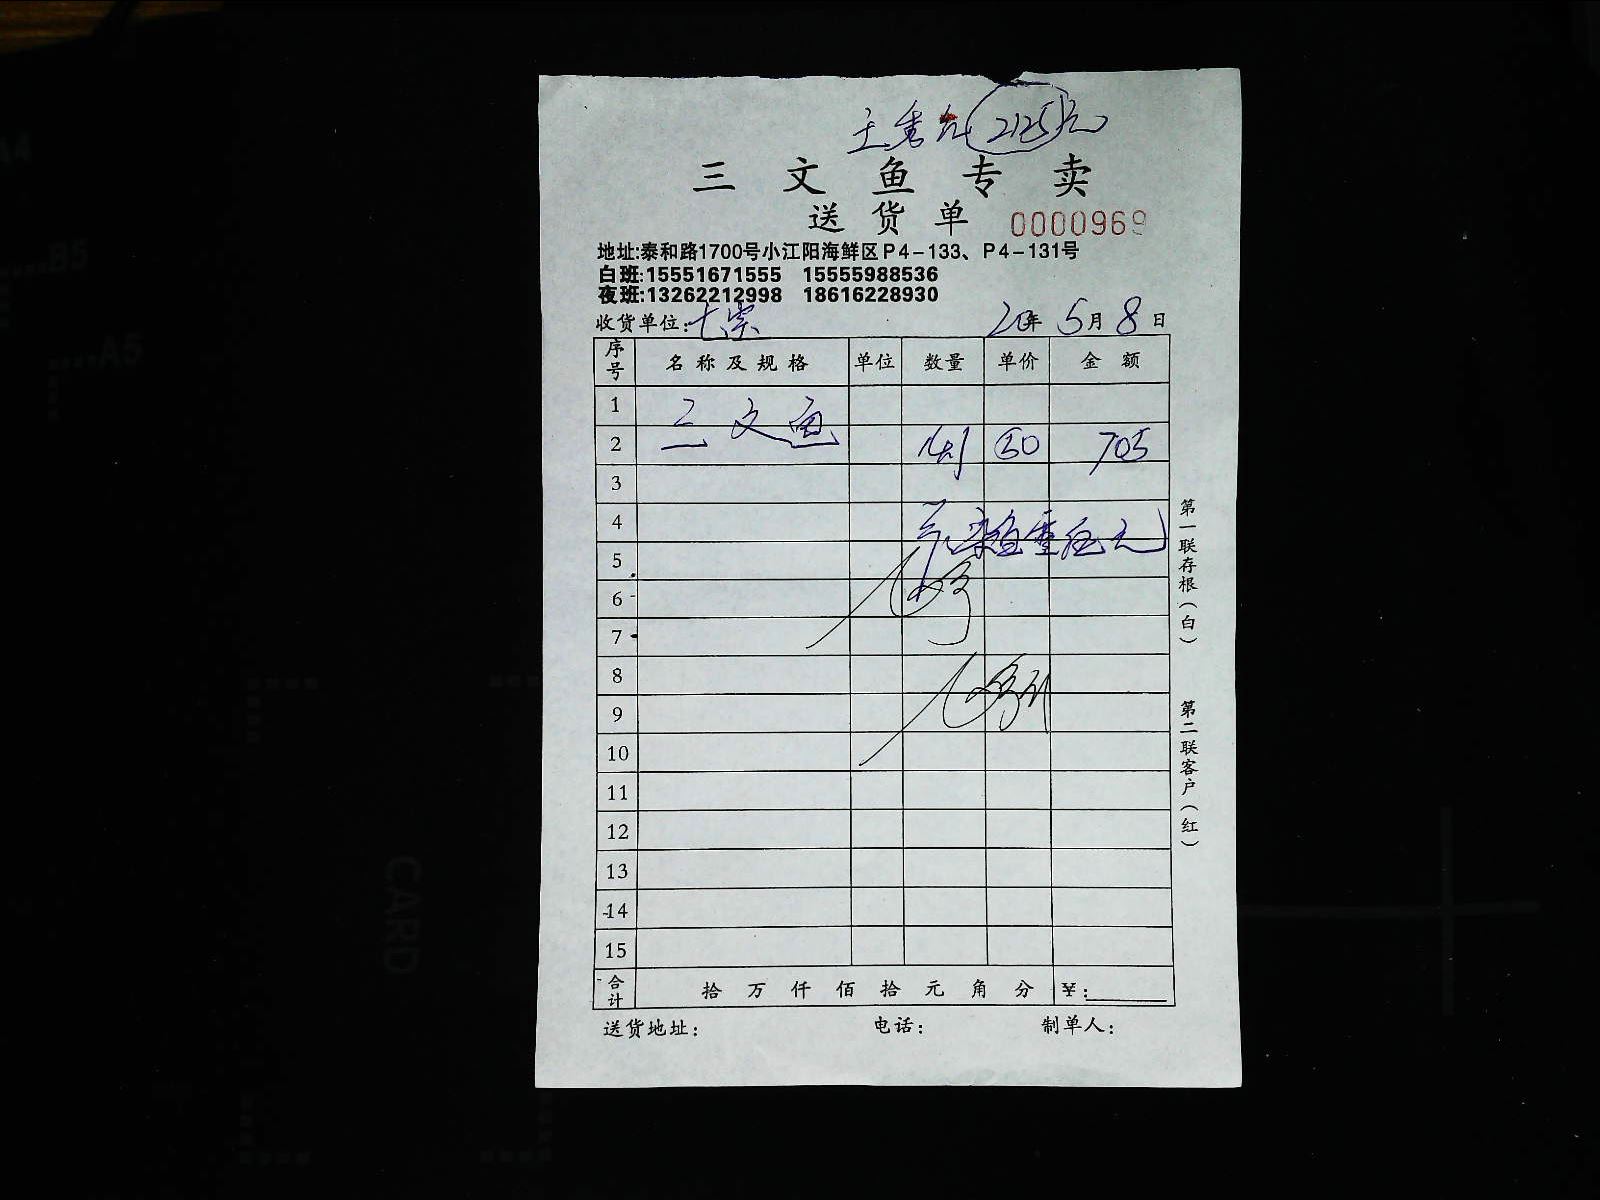 2125元
三文鱼专卖
送货单 0000969
地址:泰和路1700号小江阳海鲜区P4-133、P4-131号
白班:15551671555 15555988536
夜班:13262212998 18616228930
收货单位: 20年5月8日
序号 名称及规格 单位 数量 单价 金额
1 三文鱼
2 50 705
3
4
5
6
7
8
9
10
11
12
13
14
15
合计 拾万仟佰拾元角分 ¥:
送货地址: 电话: 制单人:
第一联存根(白)
第二联客户(红)
A4
B5
A5
CARD